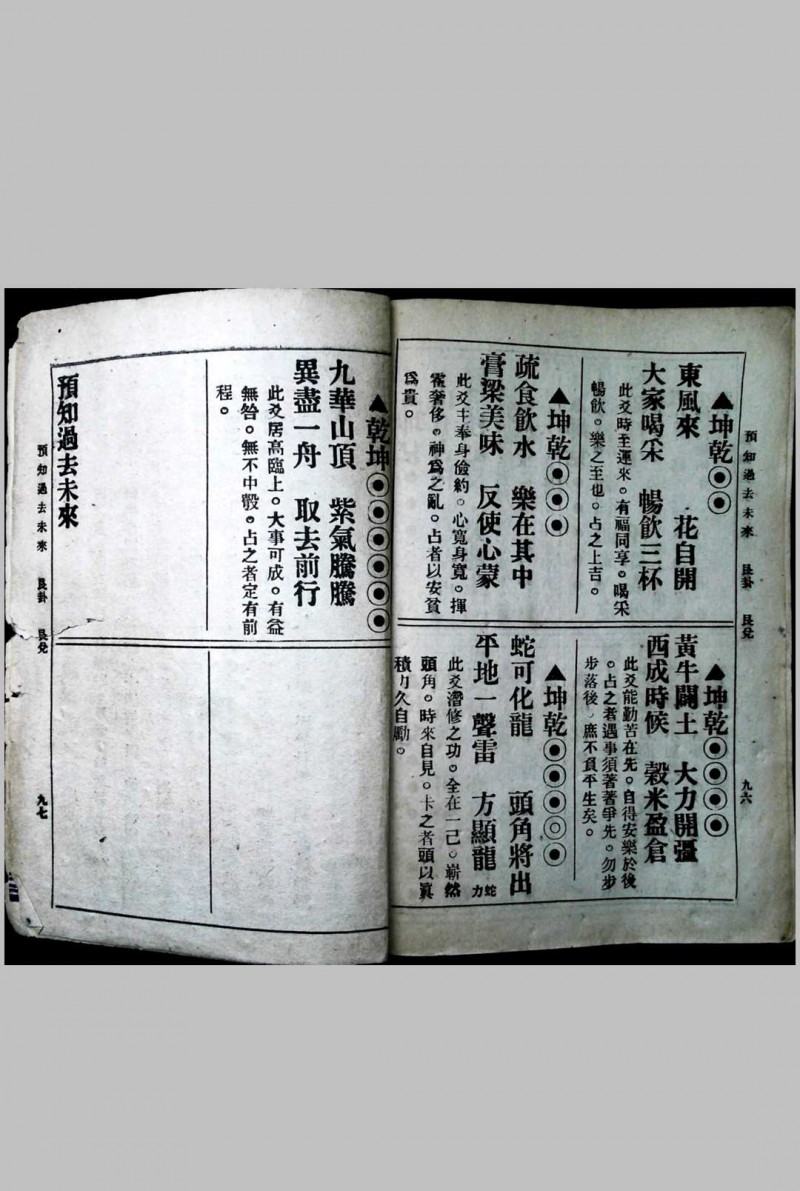 預知過去未來 艮卦 艮兌 九六
▲坤乾◉◉
東風來 花自開
大家喝采 暢飲三杯
此爻時至運來。有福同享。喝采
暢飲。樂之至也。占之上吉。
▲坤乾◉◉◉
疏食飲水 樂在其中
膏粱美味 反使心蒙
此爻主奉身儉約。心寬身寬。揮
霍奢侈。神爲之亂。占者以安貧
爲貴。
▲坤乾◉◉◉◉
黃牛闢土 大力開疆
西成時候 穀米盈倉
此爻能勤苦在先。自得安樂於後
。占之者遇事須著著爭先。勿步
步落後。庶不負平生矣。
▲坤乾◉◉◉◎◉
蛇可化龍 頭角將出
平地一聲雷 方顯龍蛇力
此爻潛修之功。全在一己。嶄然
頭角。時來自見。卡之者頭以眞
積力久自勵。
▲乾坤◉◉◉◉◉◉
九華山頂 紫氣騰騰
異盡一舟 取去前行
此爻居高臨上。大事可成。有益
無咎。無不中彀。占之者定有前
程。
預知過去未來
預知過去未來 艮卦 艮兌 九七